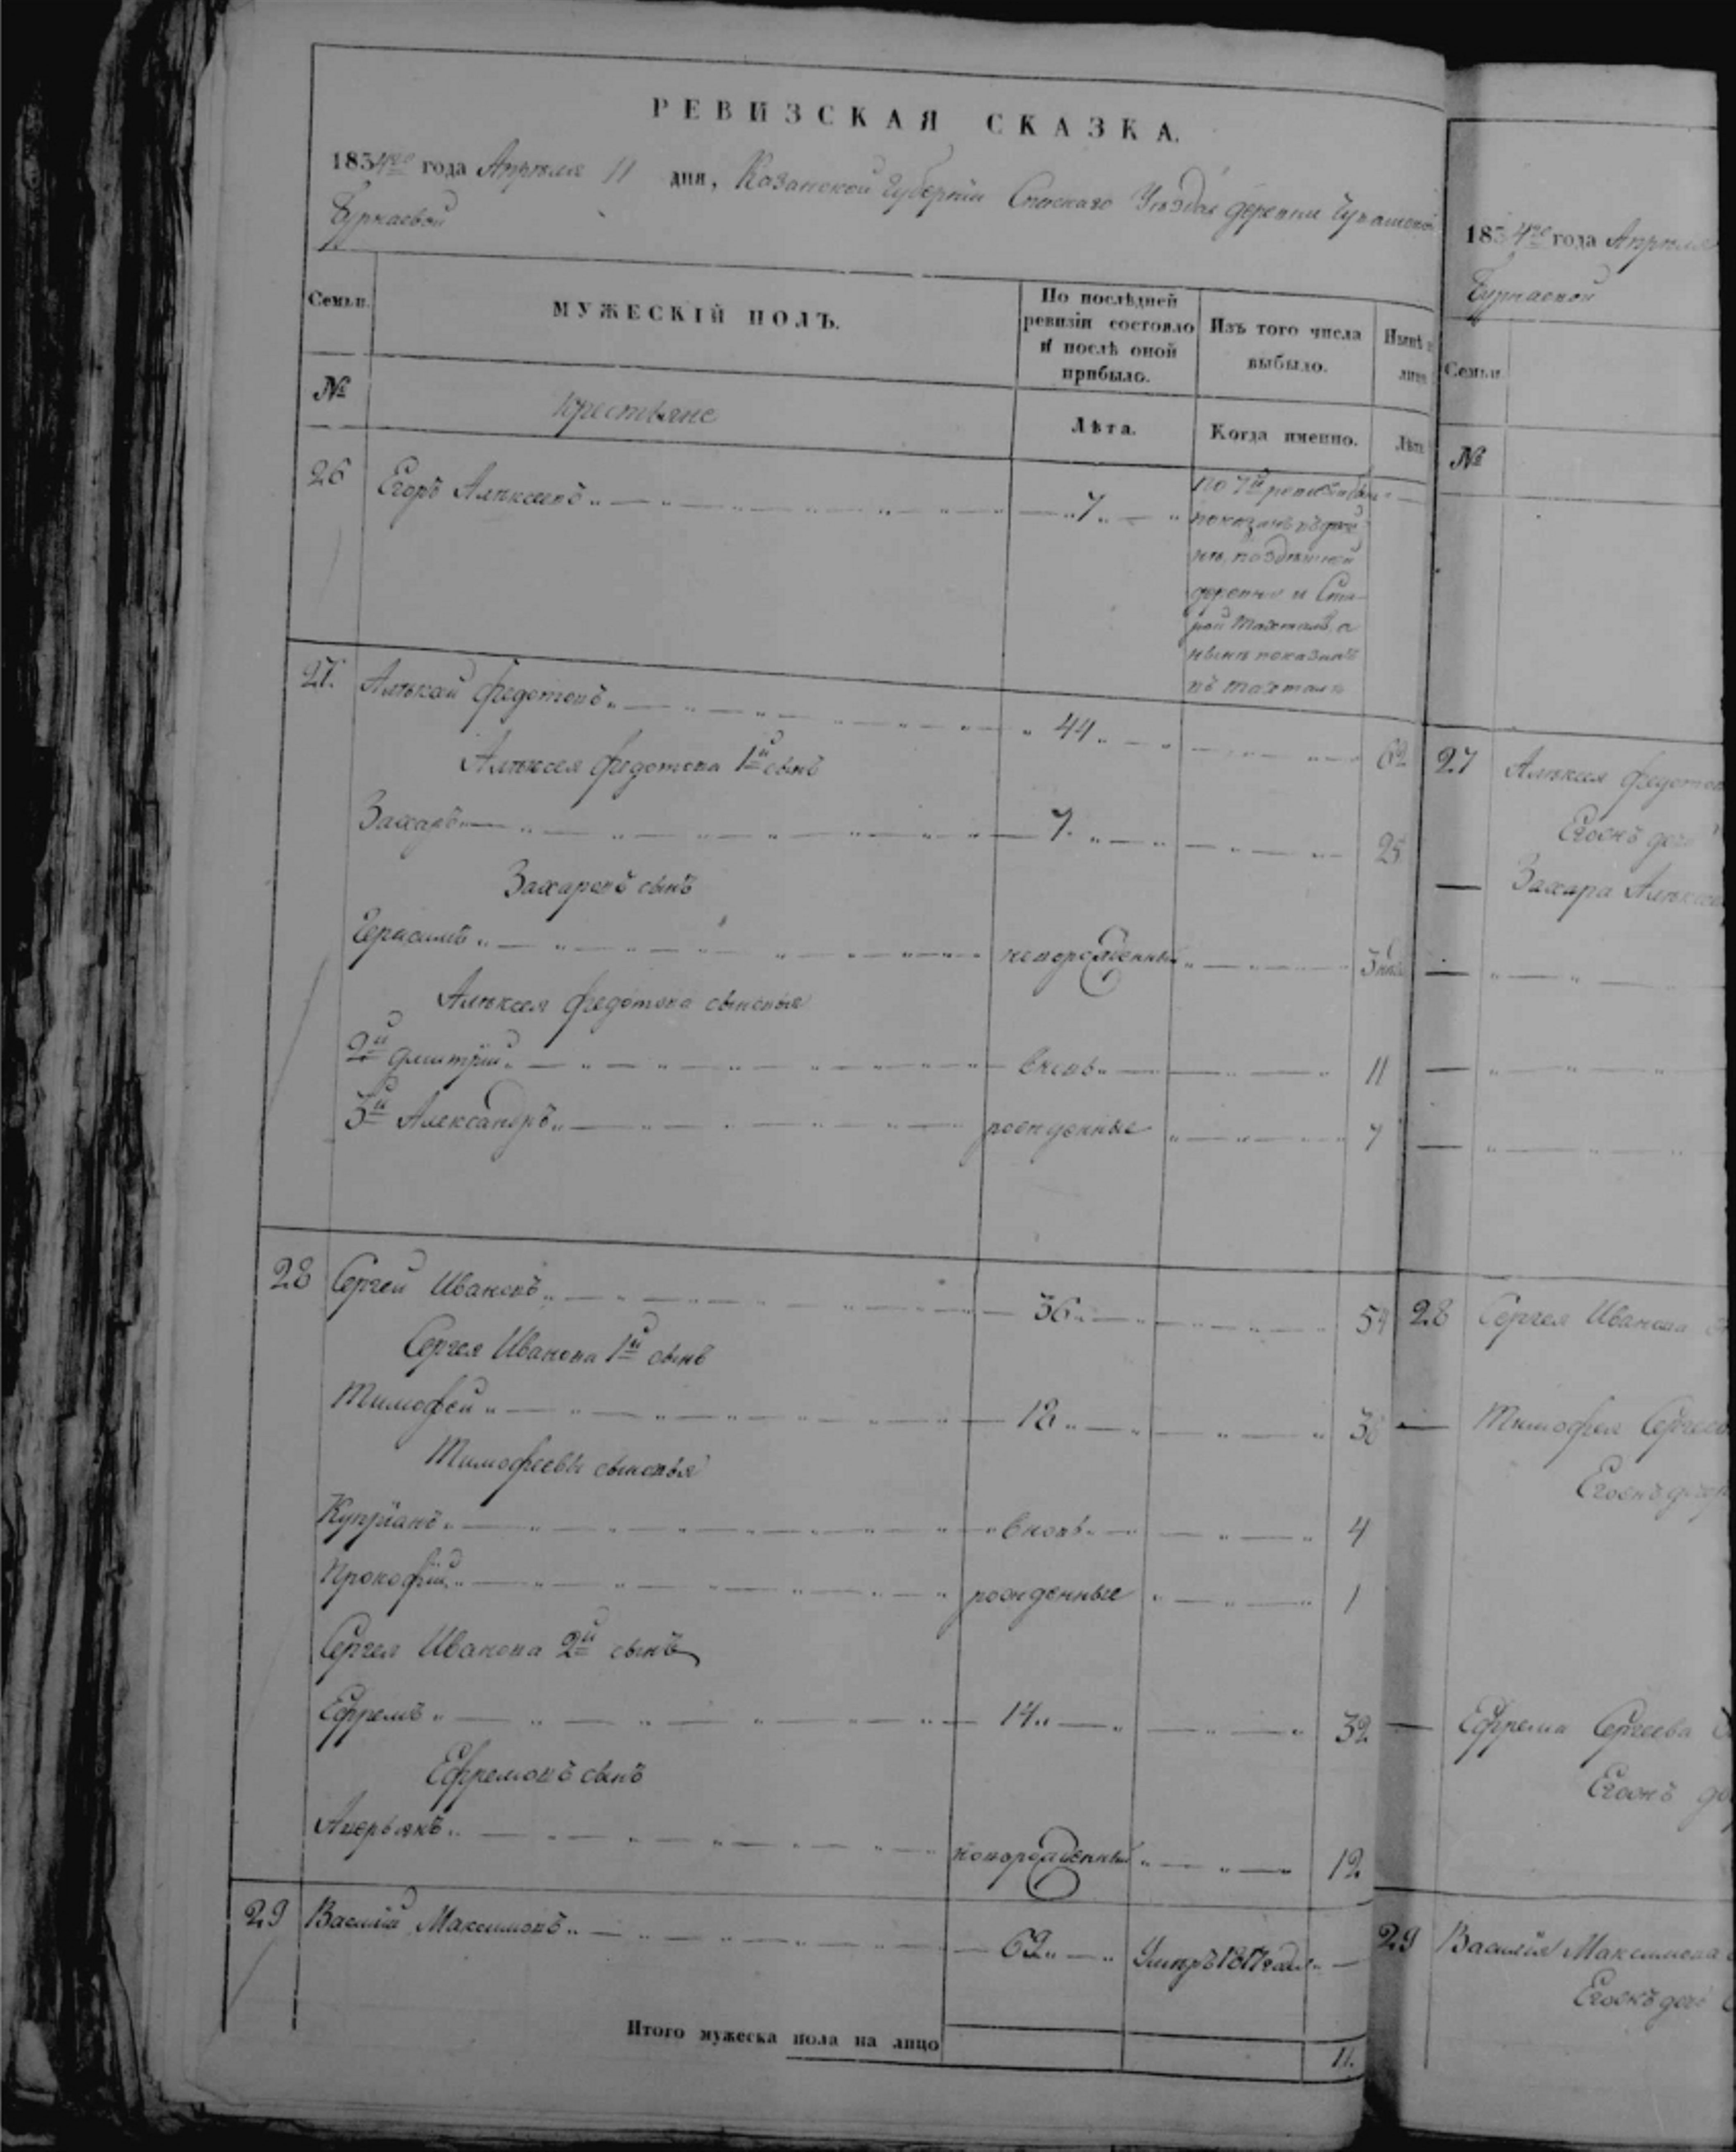 РЕВИЗСКАЯ СКАЗКА.
1834го года Апреля 11 дня, Казанской Губернии Спаскаго Уезда деревни Чувашской
Бурнаевой
Семьи.
МУЖЕСКІЙ ПОЛЪ.
По послѣдней ревизіи состояло и послѣ оной прибыло.
Изъ того числа выбыло.
Нынѣ
лицо
№
Крестьяне
Лѣта.
Когда именно.
Лѣта
26 Егоръ Алексеевъ 7 по 7й ревизіи
показанъ
здешней
деревни и Ста-
рой Тахталѣ, а
ныне показанъ
въ Тахтале
27. Алексей Федотовъ 44 62
Алексея Федотова 1й сынъ
Захаръ 7 25
Захаровъ сынъ
Герасимъ новорожденный 3
Алексея Федотова сыновья
2й Дмитрий вновь 11
3й Александръ рожденные 7
28 Сергей Ивановъ 36 54
Сергея Иванова 1й сынъ
Тимофей 18 36
Тимофеевы сыновья
Куприанъ вновь 4
Прокофий рожденные 1
Сергея Иванова 2й сынъ
Ефремъ 14 32
Ефремовъ сынъ
Аверьянъ новорожденный 12
29 Василий Максимовъ 62 Умеръ 1817 года
Итого мужеска пола на лицо 11.
1834го года Апреля
Бурнаевой
Семьи
№
27 Алексея Федотов
Егоенъ доч
Захара Алексе
28 Сергея Иванова
Тимофея Сергеев
Егоенъ доч
Ефрема Сергеева
Егоенъ до
29 Василия Максимова
Егоенъ доч